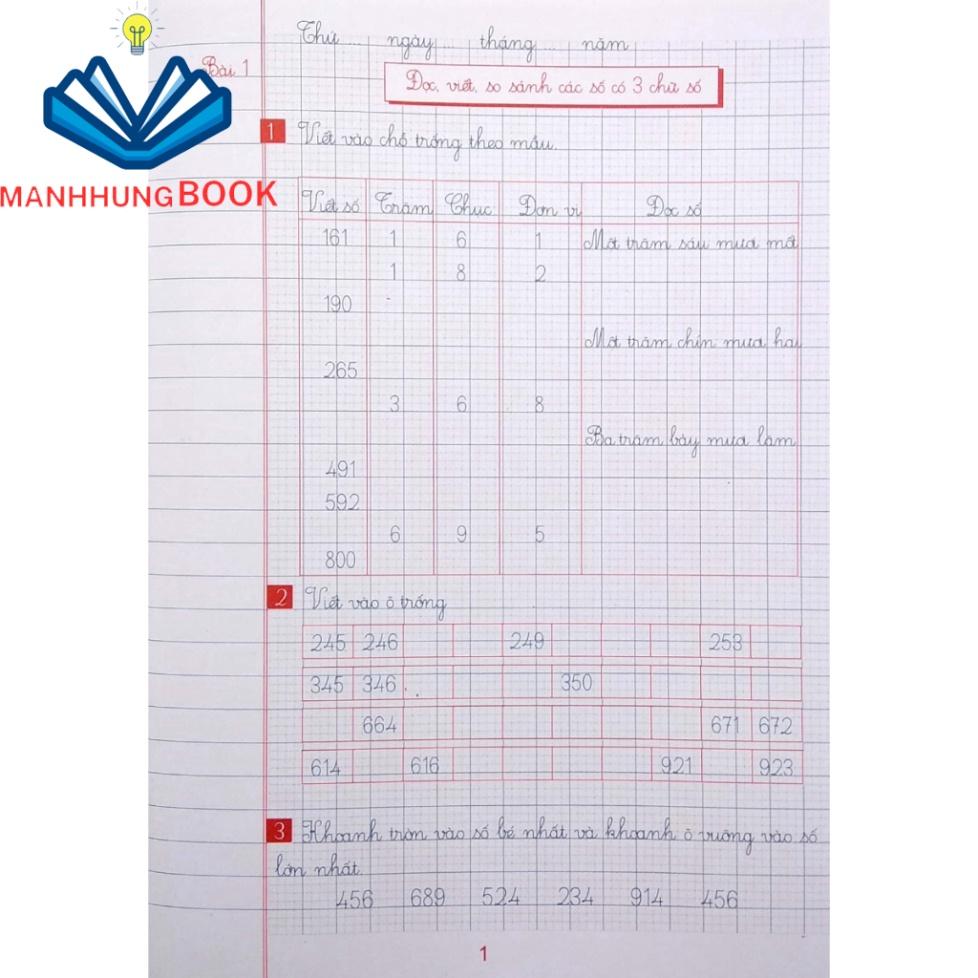 Thứ... ngày... tháng... năm
Bài 1
MANHHUNG BOOK
Đọc, viết, so sánh các số có 3 chữ số
1 Viết vào chỗ trống theo mẫu.
Viết số Trăm Chục Đơn vị Đọc số
161 1 6 1 Một trăm sáu mươi mốt
1 8 2
190
Một trăm chín mươi hai
265
3 6 8
Ba trăm bảy mươi lăm
491
592
6 9 5
800
2 Viết vào ô trống
245 246 249 253
345 346 350
664 671 672
614 616 921 923
3 Khoanh tròn vào số bé nhất và khoanh ô vuông vào số
lớn nhất.
456 689 524 234 914 456
1